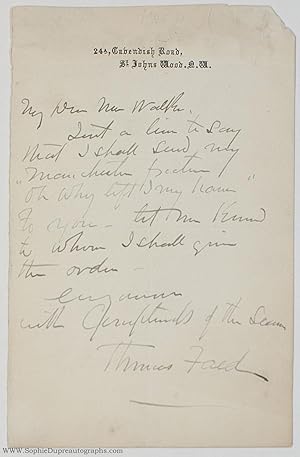 24A, Cavendish Road,
St Johns Wood. N.W.
My Dear Mr Walker.
Just a line to say
that I shall send my
"Manchester picture
"Oh why left I my hame"
to you - let me know
to whom I shall give
the order -
with Compliments of the Season
Thomas Faed
www.SophieDupreautographs.com